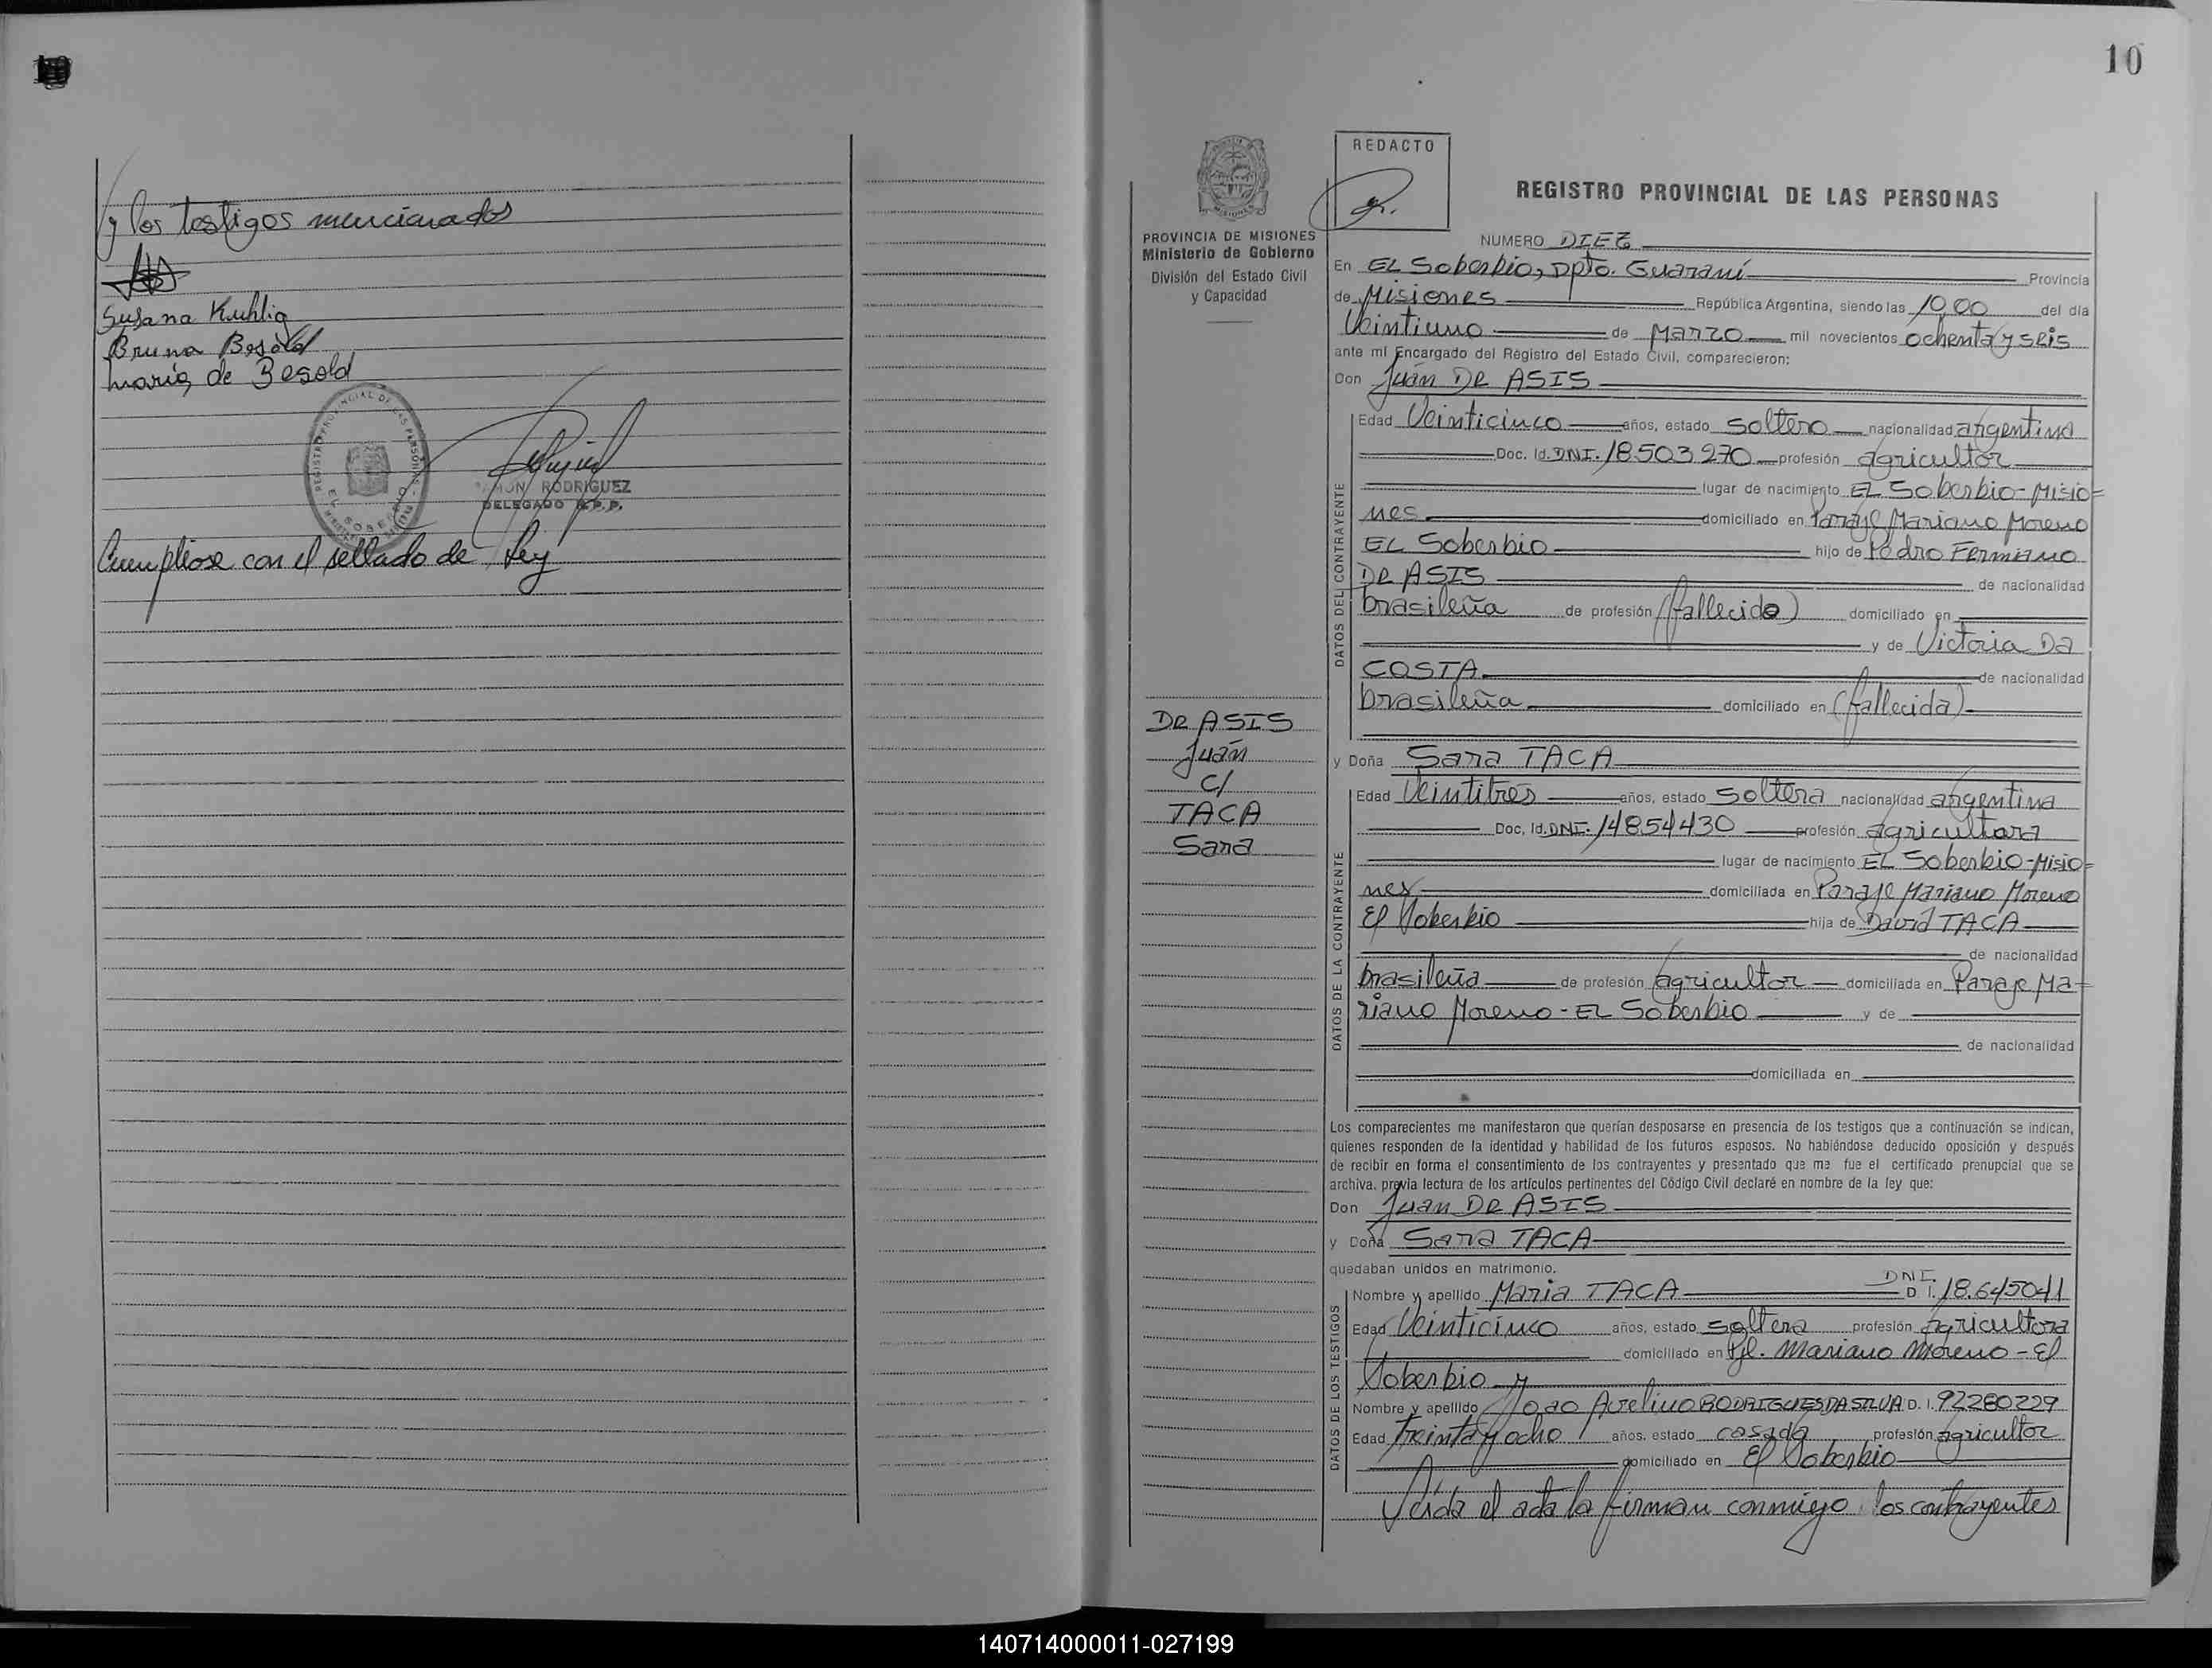 y los testigos mencionados
Susana Kuhlig
Bruno Besold
María de Besold
REGISTRO PROVINCIAL DE LAS PERSONAS
EL SOBERBIO
RAMON RODRIGUEZ
DELEGADO R.P.P.
Cumpliose con el sellado de Ley
10
PROVINCIA DE MISIONES
Ministerio de Gobierno
División del Estado Civil
y Capacidad
DE ASIS
Juán
c/
TACA
Sara
REDACTO
REGISTRO PROVINCIAL DE LAS PERSONAS
NUMERO DIEZ
En EL Soberbio, Dpto. Guaraní Provincia
de Misiones República Argentina, siendo las 10,00 del día
Veintiuno de Marzo mil novecientos ochenta y seis
ante mi Encargado del Registro del Estado Civil, comparecieron:
Don Juán DE ASIS
Edad Veinticinco años, estado soltero nacionalidad argentina
Doc. Id. DNI. 18.503.270 profesión agricultor
lugar de nacimiento EL Soberbio-Misio=
nes domiciliado en Paraje Mariano Moreno
EL Soberbio hijo de Pedro Fermiano
DE ASIS de nacionalidad
brasileña de profesión (fallecido) domiciliado en
y de Victoria Da
COSTA de nacionalidad
brasileña domiciliado en (fallecida)
y Doña Sara TACA
Edad Veintitres años, estado soltera nacionalidad argentina
Doc. Id. DNI. 14854430 profesión agricultora
lugar de nacimiento EL Soberbio-Misio=
nes domiciliada en Paraje Mariano Moreno
El Soberbio hija de David TACA
de nacionalidad
brasileña de profesión agricultor domiciliada en Paraje Ma-
riano Moreno - EL Soberbio y de
de nacionalidad
domiciliada en
DATOS DEL CONTRAYENTE
DATOS DE LA CONTRAYENTE
Los comparecientes me manifestaron que querían desposarse en presencia de los testigos que a continuación se indican,
quienes responden de la identidad y habilidad de los futuros esposos. No habiéndose deducido oposición y después
de recibir en forma el consentimiento de los contrayentes y presentado que me fue el certificado prenupcial que se
archiva, previa lectura de los artículos pertinentes del Código Civil declaré en nombre de la ley que:
Don Juan DE ASIS
y Doña Sara TACA
quedaban unidos en matrimonio.
Nombre y apellido Maria TACA DNI. D. I. 18.645041
Edad Veinticinco años, estado soltera profesión agricultora
domiciliado en Pje. Mariano Moreno - El
Soberbio y
Nombre y apellido Joao Avelino RODRIGUES DA SILVA D. I. 92280229
Edad Treinta y ocho años, estado casado profesión agricultor
domiciliado en El Soberbio
DATOS DE LOS TESTIGOS
Leída el acta la firman conmigo los contrayentes
140714000011-027199